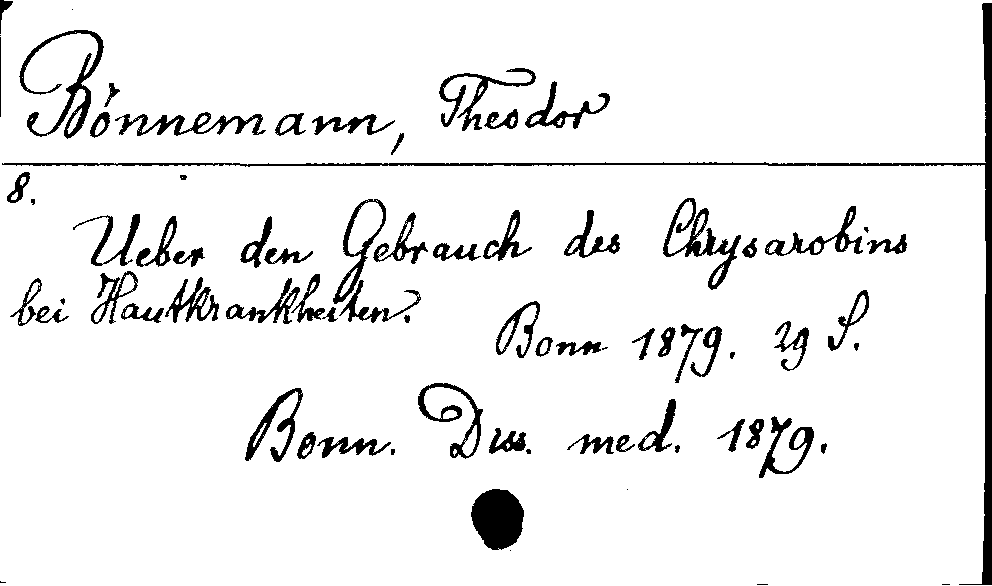 Bönnemann, Theodor
8.
Ueber den Gebrauch des Chrysarobins
bei Hautkrankheiten.
Bonn 1879. 29 S.
Bonn. Diss. med. 1879.